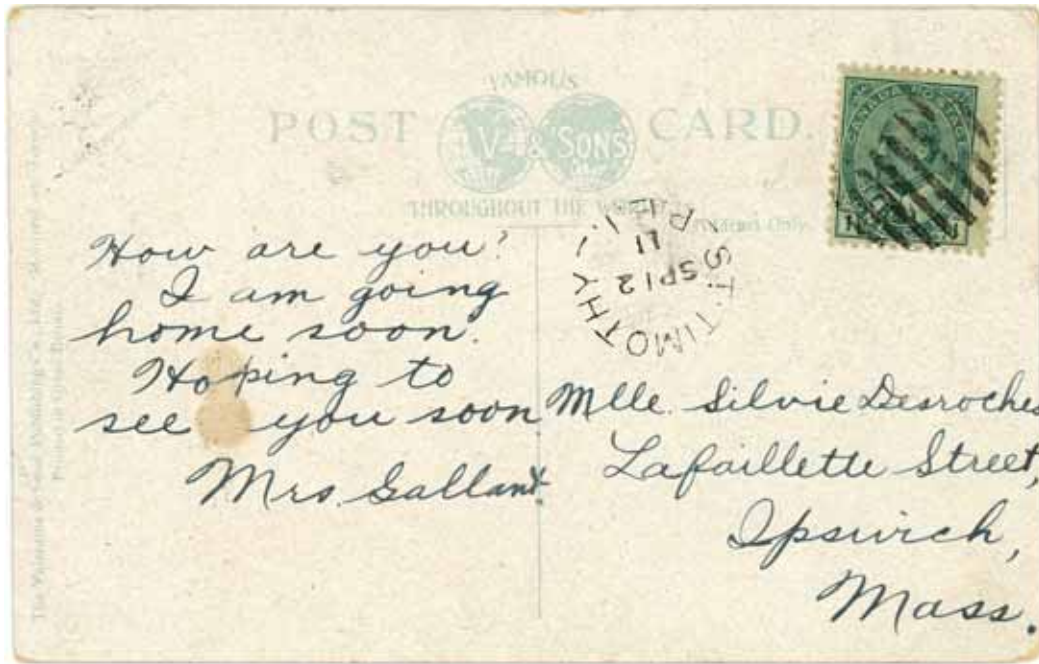 FAMOUS
POST CARD.
V & SONS
THROUGHOUT THE WORLD
Address Only
CANADA POSTAGE
ST. TIMOTHY
P.E.I.
SP 12
11
How are you?
I am going
home soon.
Hoping to
see you soon
Mrs. Gallant.
Mlle. Silvie Desroches
Lafaillette Street,
Ipswich,
Mass.
The Valentine & Sons Publishing Co. Ltd., Montreal and Toronto
Printed in Great Britain.